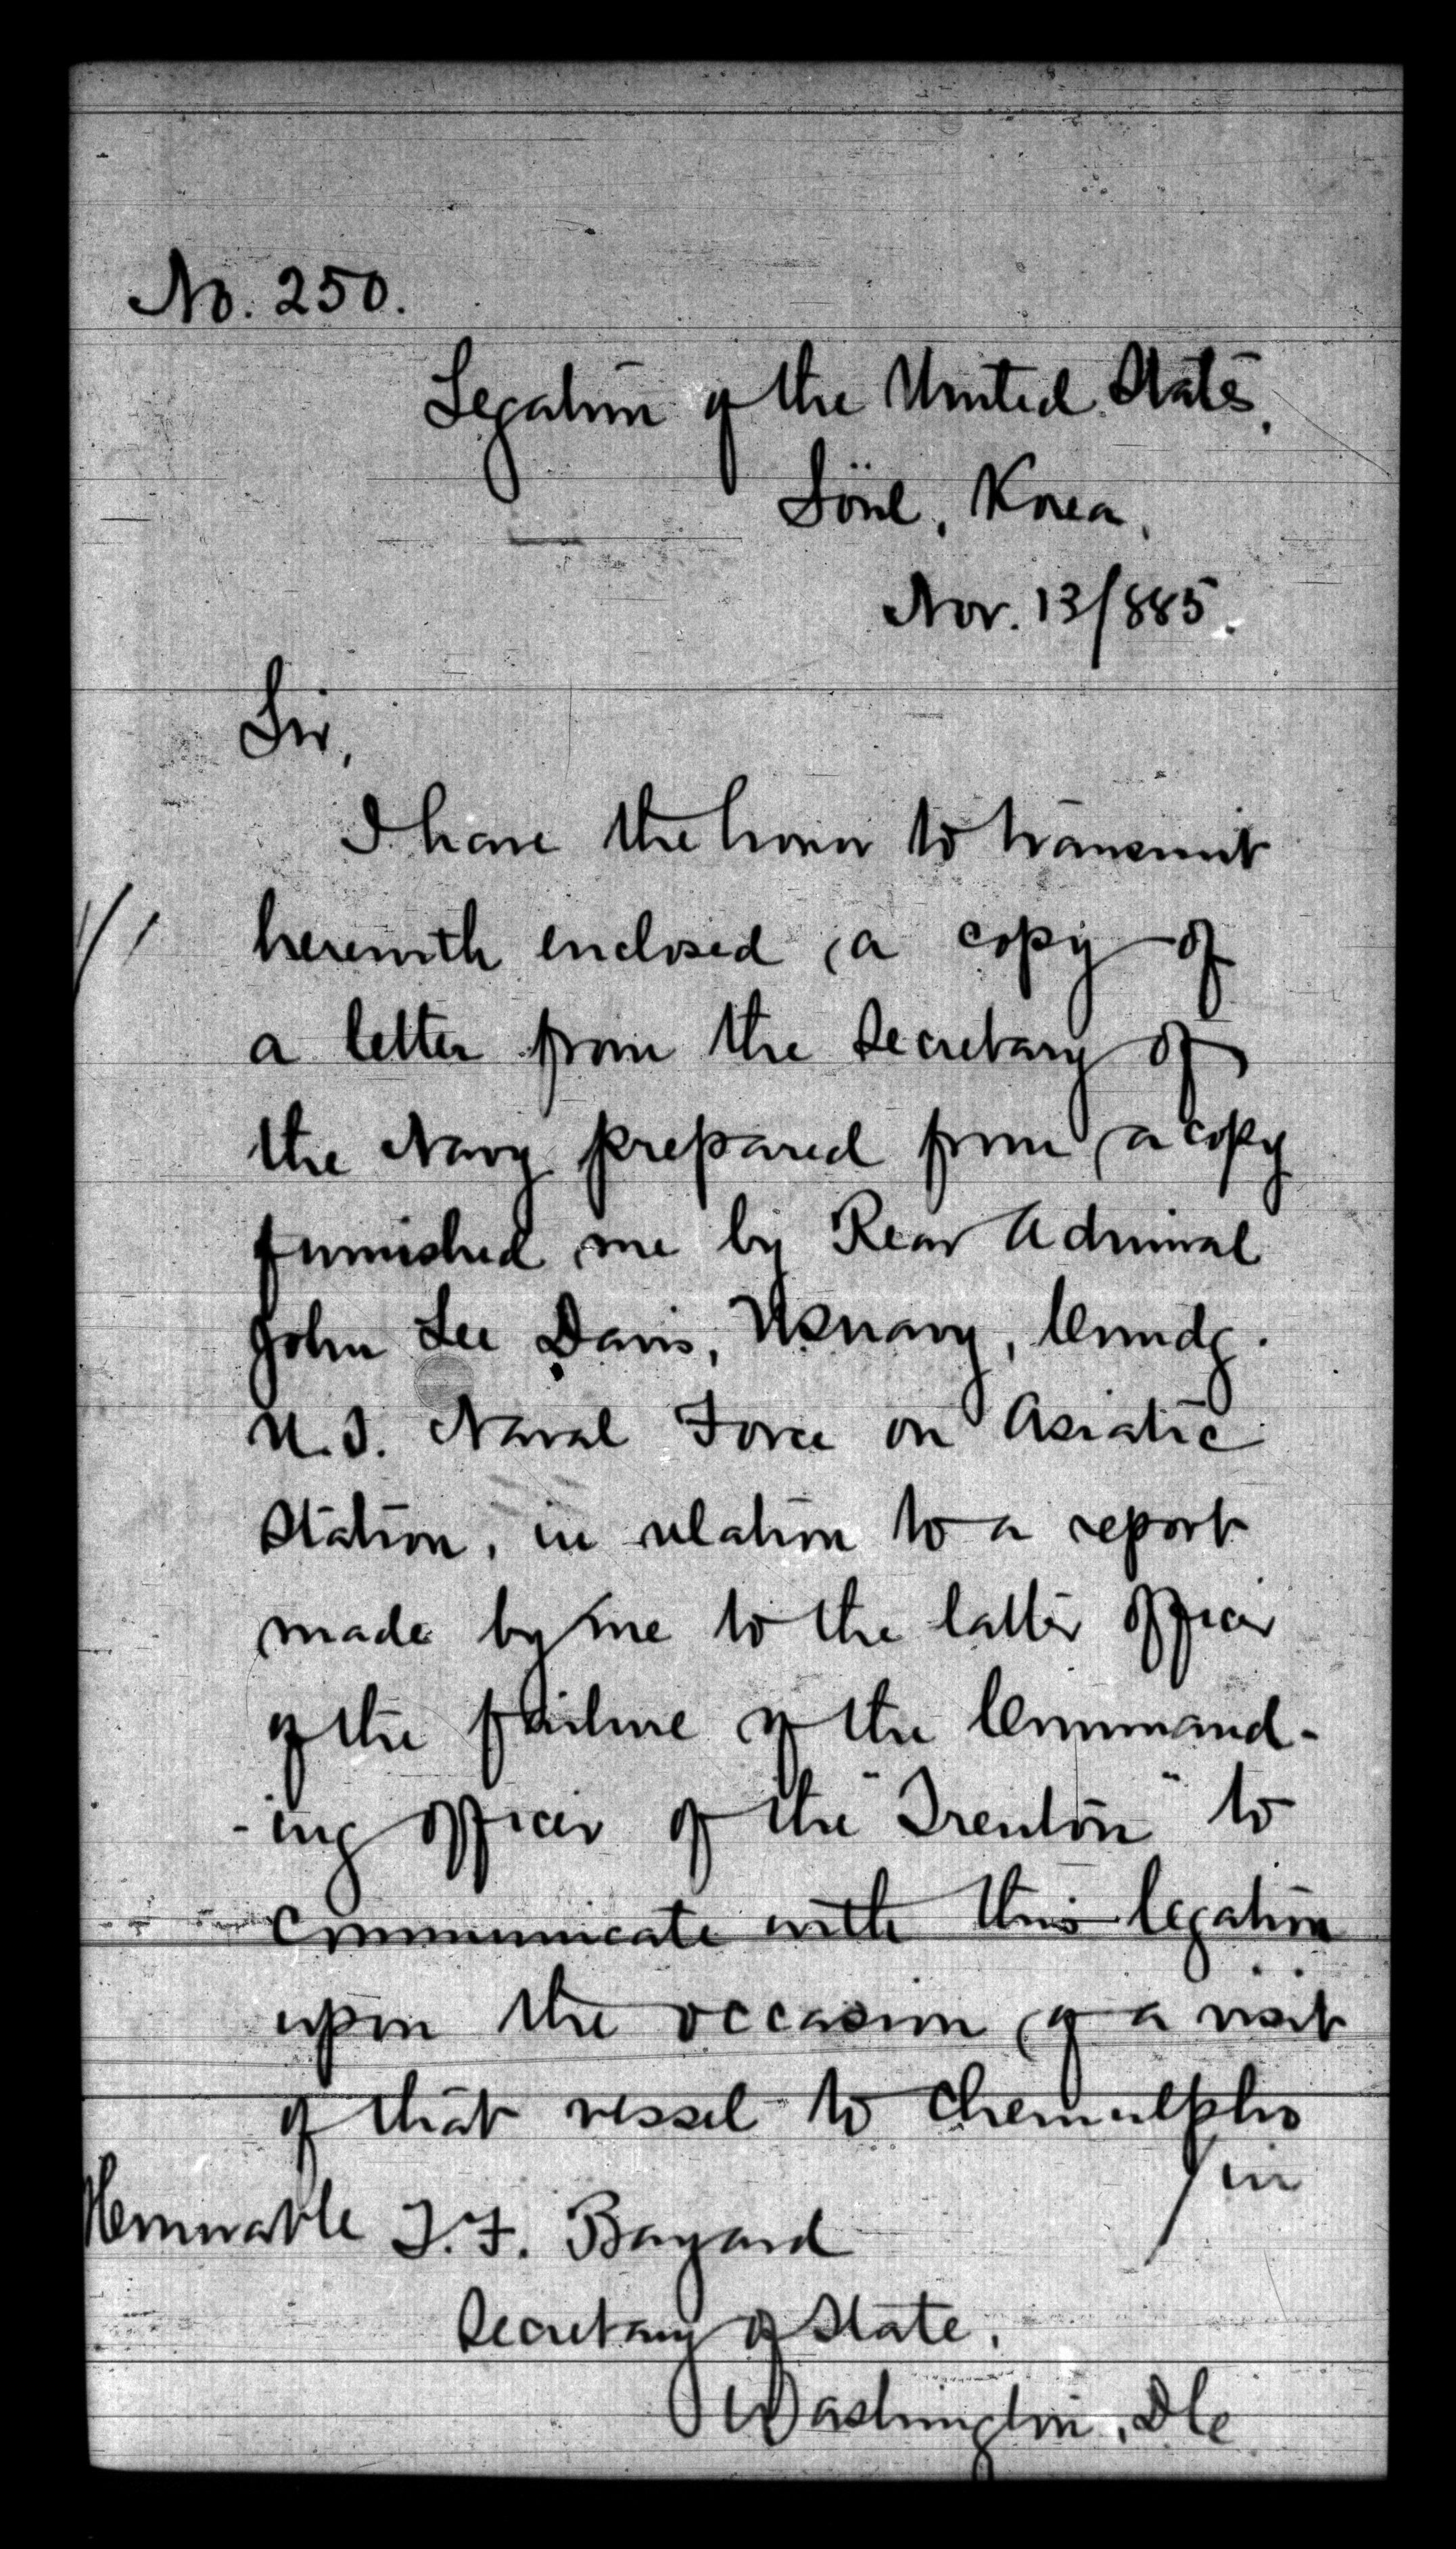 No. 250.
Legation of the United States,
Söul, Korea,
Nov. 13/885.
Sir,
I have the honor to transmit
1/ herewith enclosed, a copy of
a letter from the Secretary of
the Navy prepared from a copy
furnished me by Rear Admiral
John Lee Davis, US Navy, Comdg.
U.S. Naval Force on Asiatic
Station, in relation to a report
made by me to the latter officer
of the failure of the Command-
-ing officer of the "Trenton" to
communicate with this legation
upon the occasion of a visit
of that vessel to Chemulpho
/in
Honorable T. F. Bayard
Secretary of State,
Washington, D.C.